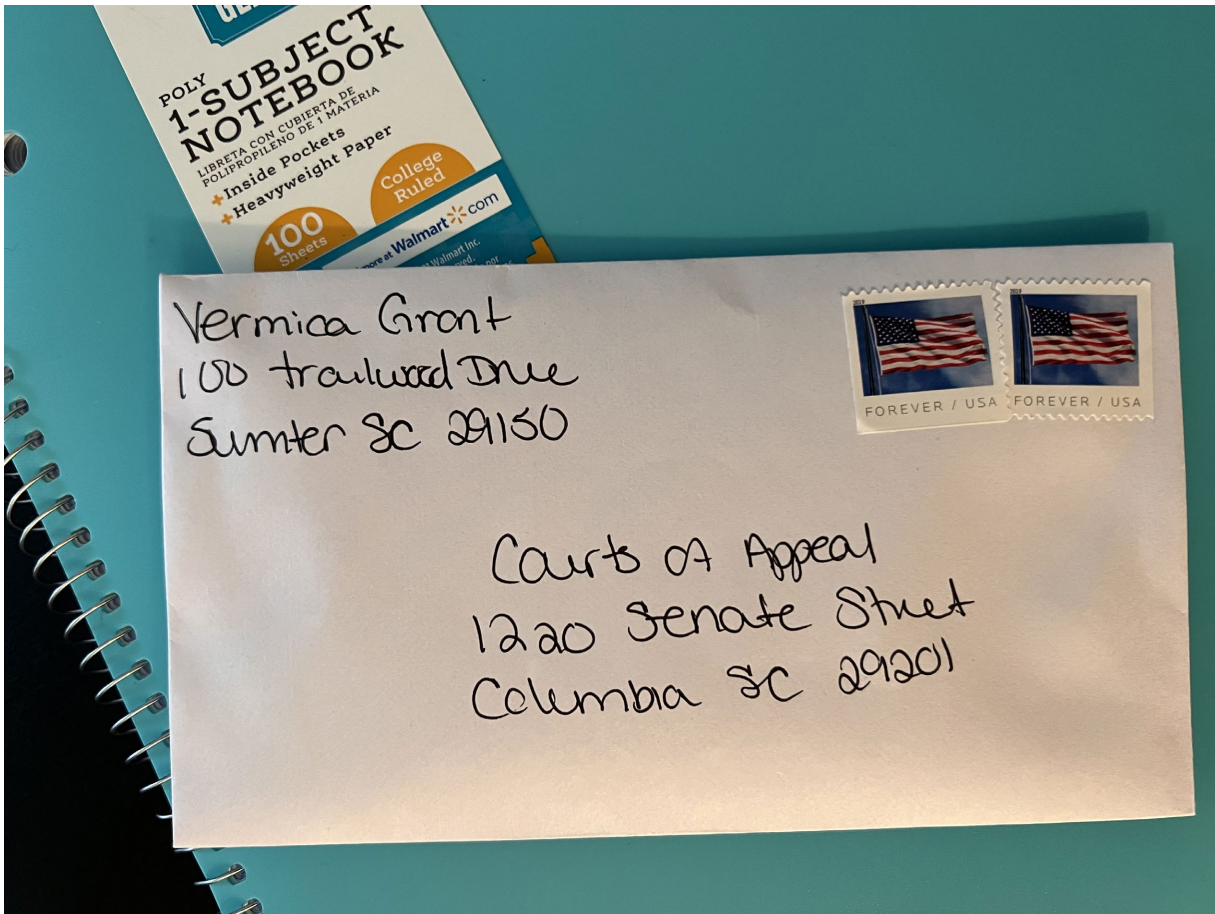 POLY
1-SUBJECT
NOTEBOOK
LIBRETA CON CUBIERTA DE
POLIPROPILENO DE 1 MATERIA
+Inside Pockets
+Heavyweight Paper
College
Ruled
100
Sheets
more at Walmart.com
Walmart Inc.
Vermica Grant
100 trailwood Drive
Sumter SC 29150
2019
FOREVER / USA
2019
FOREVER / USA
Courts of Appeal
1220 Senate Street
Columbia SC 29201